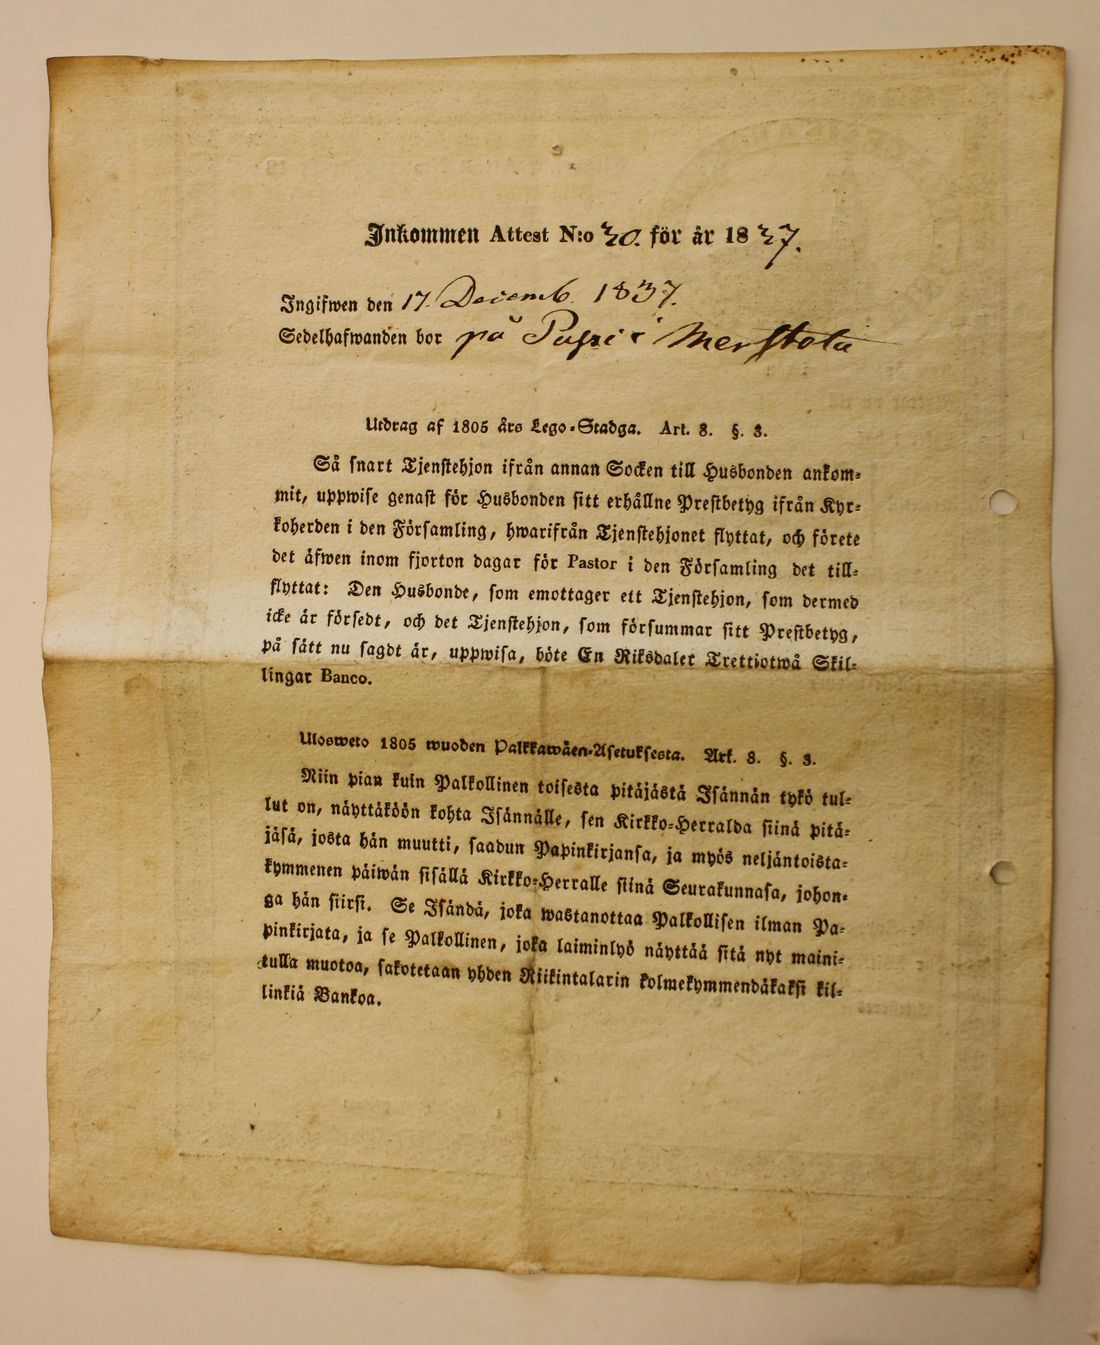 Inkommen Attest N:o 30. för år 1837.
Ingifwen den 17. Decemb. 1837.
Sedelhafwanden bor på i
Utdrag af 1805 års Lego-Stadga. Art. 8. §. 3.
Så snart Tjenstehjon ifrån annan Socken till Husbonden ankom-
mit, uppwise genast för Husbonden sitt erhållne Prestbetyg ifrån Kyr-
koherden i den Församling, hwarifrån Tjenstehjonet flyttat, och förete
det äfwen inom fjorton dagar för Pastor i den Församling det till-
flyttat: Den Husbonde, som emottager ett Tjenstehjon, som dermed
icke är försedt, och det Tjenstehjon, som försummar sitt Prestbetyg,
på sätt nu sagdt är, uppwisa, böte En Riksdaler Trettiotwå Skil-
lingar Banco.
Ulosweto 1805 wuoden Palkkawäen-Asetuksesta. Art. 8. §. 3.
Niin pian kuin Palkollinen toisesta pitäjästä Isännän tykö tul-
lut on, näyttäköön kohta Isännälle, sen Kirkko-Herralda siinä pitä-
jäsä, josta hän muutti, saadun Papinkirjansa, ja myös neljäntoista-
kymmenen päiwän sisällä Kirkko-Herralle siinä Seurakunnasa, johon-
ga hän siirsi. Se Isändä, joka wastanottaa Palkollisen ilman Pa-
pinkirjata, ja se Palkollinen, joka laiminlyö näyttää sitä nyt maini-
tulla muotoa, sakotetaan yhden Riikintalarin kolmekymmendäkaksi kil-
linkiä Bankoa.